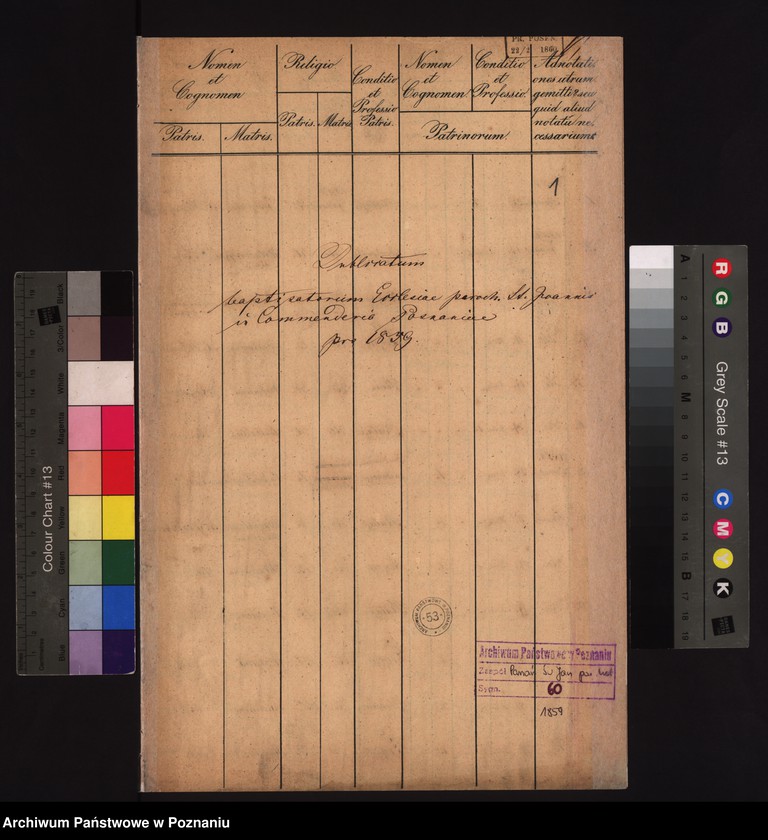 PR. POSEN
22/2 1860
Nomen
et
Cognomen
Religio
Conditio
et
Professio
Patris.
Nomen
et
Cognomen
Conditio
et
Professio
Adnotati-
ones utrum
gemitti & seu
quid aliud
notatu ne-
cessarium
Patris. Matris.
Patris. Matris
Patrinorum.
1
Duplicatum
baptisatorum Ecclesiae paroch. St. Joannis
in Commenderie Posnaniae
pro 1859.
53
Archiwum Państwowe w Poznaniu
Zespół Poznań Św Jan par kat
Sygn. 60
1859
Colour Chart #13
Black
3/Color
White
Magenta
Red
Yellow
Green
Cyan
Blue
Centimetres
Grey Scale #13
R G B
C M Y K
A 1 2 3 4 5 6 M 8 9 10 11 12 13 14 15 B 17 18 19
Archiwum Państwowe w Poznaniu